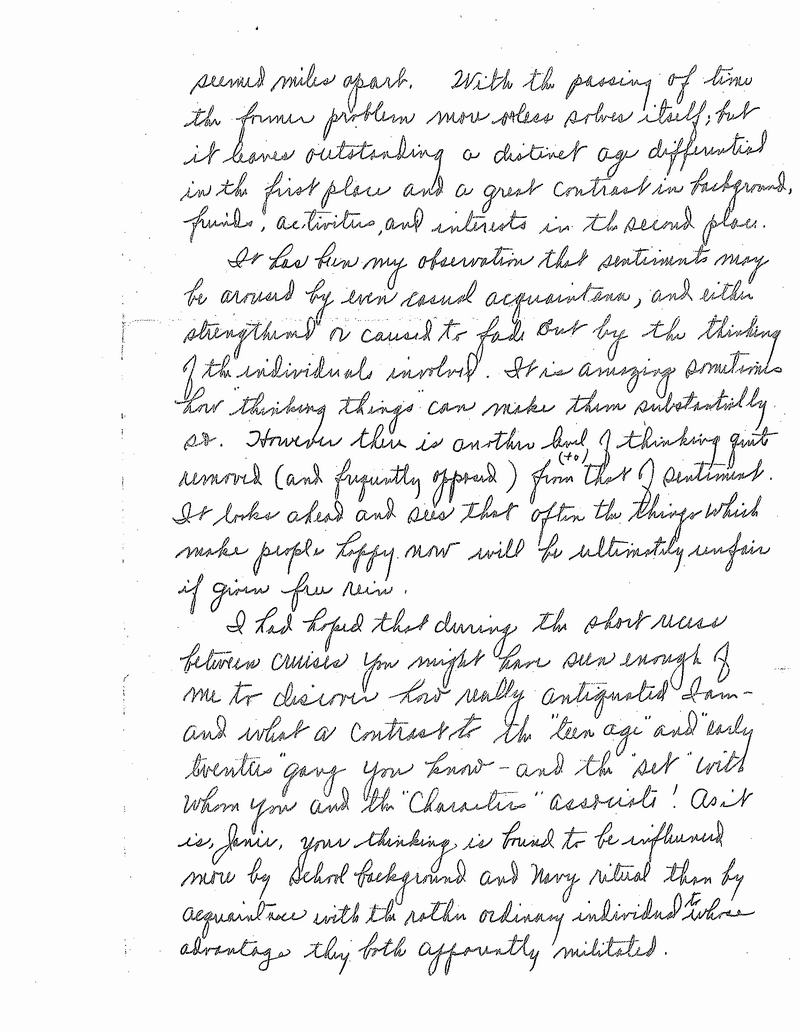 seemed miles apart. With the passing of time
the former problem more or less solves itself; but
it leaves outstanding a distinct age differential
in the first place and a great contrast in background,
friends, activities, and interests in the second place.
It has been my observation that sentiments may
be aroused by even casual acquaintance, and either
strengthened or caused to fade out by the thinking
of the individuals involved. It is amazing sometimes
how "thinking things" can make them substantially
so. However there is another level of thinking quite
(to)
removed (and frequently opposed) from that of sentiment.
It looks ahead and sees that often the things which
make people happy now will be ultimately unfair
if given free rein.
I had hoped that during the short recess
between cruises you might have seen enough of
me to discover how really antiquated I am -
and what a contrast to the "teen age" and "early
twenties" gang you know - and the "set" with
whom you and the "Characters" associate! As it
is, Janie, your thinking is bound to be influenced
more by school background and Navy ritual than by
acquaintance with the rather ordinary individual to whose
advantage they both apparently militated.